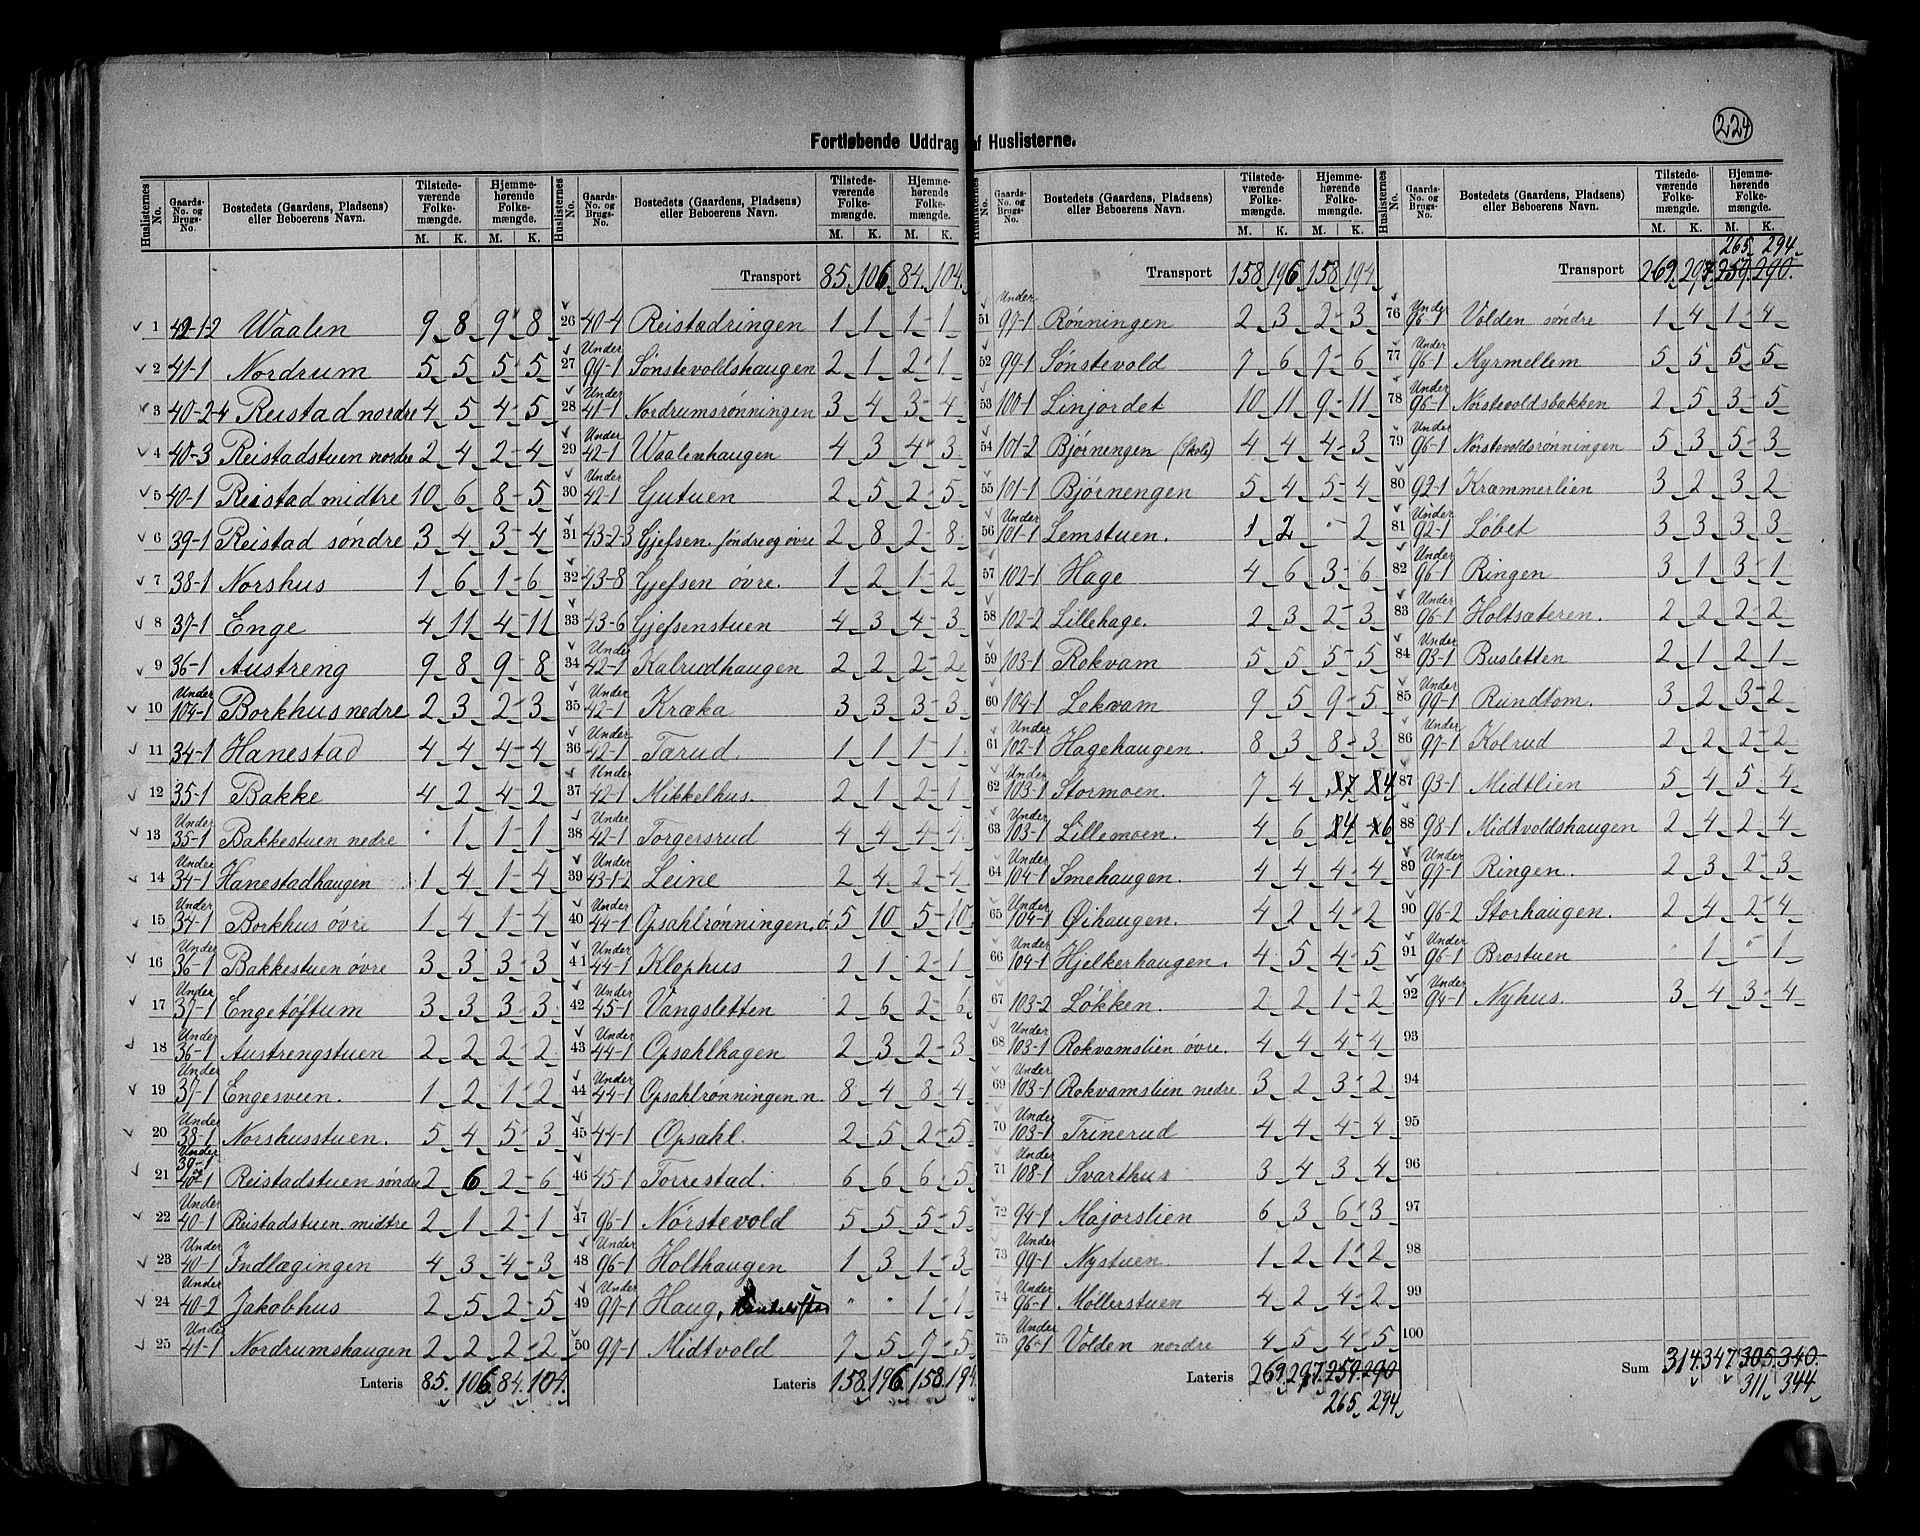 224
Fortløbende Uddrag af Huslisterne.
Huslisternes No. Gaards-No. og Brugs-No. Bostedets (Gaardens, Pladsens) eller Beboerens Navn. Tilstedeværende Folkemængde. M. K. Hjemmehørende Folkemængde. M. K.
1 42-1-2 Waalen 9 8 9 8
2 41-1 Nordrum 5 5 5 5
3 40-2-4 Reistad nordre 4 5 4 5
4 40-3 Reistadstuen nordre 2 4 2 4
5 40-1 Reistad midtre 10 6 8 5
6 39-1 Reistad søndre 3 4 3 4
7 38-1 Norshus 1 6 1 6
8 37-1 Enge 4 11 4 11
9 36-1 Austreng 9 8 9 8
10 Under 104-1 Borkhus nedre 2 3 2 3
11 34-1 Hanestad 4 4 4 4
12 35-1 Bakke 4 2 4 2
13 Under 35-1 Bakkestuen nedre " 1 1 1
14 Under 34-1 Hanestadhaugen 1 4 1 4
15 Under 34-1 Borkhus øvre 1 4 1 4
16 Under 36-1 Bakkestuen øvre 3 3 3 3
17 Under 37-1 Engetøftum 3 3 3 3
18 Under 36-1 Austrengstuen 2 2 2 2
19 Under 37-1 Engesveen. 1 2 1 2
20 Under 38-1 Norshusstuen. 5 4 5 3
21 Under 39-1 og 40-1 Reistadstuen søndre 2 6 2 6
22 Under 40-1 Reistadstuen midtre 2 1 2 1
23 Under 40-1 Indlægingen 4 3 4 3
24 Under 40-2 Jakobhus 2 5 2 5
25 Under 41-1 Nordrumshaugen 2 2 2 2
Lateris 85. 106. 84. 104.
Huslisternes No. Gaards-No. og Brugs-No. Bostedets (Gaardens, Pladsens) eller Beboerens Navn. Tilstedeværende Folkemængde. M. K. Hjemmehørende Folkemængde. M. K.
Transport 85. 106. 84. 104.
26 40-4 Reistadringen 1 1 1 1
27 Under 99-1 Sønstevoldshaugen 2 1 2 1
28 Under 41-1 Nordrumsrønningen 3 4 3 4
29 Under 42-1 Waalenhaugen 4 3 4 3
30 Under 42-1 Gutuen 2 5 2 5
31 Under 43-2-3 Gjefsen Søndre og øvre 2 8 2 8
32 43-8 Gjefsen øvre. 1 2 1 2
33 43-6 Gjefsenstuen 4 3 4 3
34 Under 42-1 Kalrudhaugen 2 2 2 2
35 Under 42-1 Kræka 3 3 3 3
36 Under 42-1 Tarud. 1 1 1 1
37 Under 42-1 Mikkelhus. 2 1 2 1
38 Under 42-1 Torgersrud 4 4 4 4
39 Under 43-1-2 Leine 2 4 2 4
40 Under 44-1 Opsahlrønningen. ø. 5 10 5 10
41 Under 44-1 Klophus 2 1 2 1
42 Under 45-1 Vangsletten 2 6 2 6
43 Under 44-1 Opsahlhagen 2 3 2 3
44 Under 44-1 Opsahlrønningen n. 8 4 8 4
45 44-1 Opsahl. 2 5 2 5
46 45-1 Torrestad. 6 6 6 5
47 96-1 Nørstevold 5 5 5 5
48 Under 96-1 Holthaugen 1 3 1 3
49 Under 97-1 Haug, " " 1 1
50 97-1 Midtvold 7 5 7 5
Lateris 158. 196. 158. 194
Huslisternes No. Gaards-No. og Brugs-No. Bostedets (Gaardens, Pladsens) eller Beboerens Navn. Tilstedeværende Folkemængde. M. K. Hjemmehørende Folkemængde. M. K.
Transport 158 196 158 194
51 Under 97-1 Rønningen 2 3 2 3
52 99-1 Sønstevold 7 6 7 6
53 100-1 Linjordet 10 11 9 11
54 101-2 Bjørnengen (Skole) 4 4 4 3
55 101-1 Bjørnengen 5 4 5 4
56 Under 101-1 Lemstuen. 1 2 " 2
57 102-1 Hage 4 6 3 6
58 102-2 Lillehage. 2 3 2 3
59 103-1 Rokvam 5 5 5 5
60 104-1 Lekvam 9 5 9 5
61 Under 102-1 Hagehaugen. 8 3 8 3
62 Under 103-1 Stormoen. 7 4 7 4
63 Under 103-1 Lillemoen. 4 6 4 6
64 Under 104-1 Smehaugen. 4 4 4 4
65 Under 104-1 Øihaugen. 4 2 4 2
66 Under 104-1 Hjelkerhaugen. 4 5 4 5
67 103-2 Løkken. 2 2 1 2
68 Under 103-1 Rokvamslien øvre. 4 4 4 4
69 Under 103-1 Rokvamslien nedre 3 2 3 2
70 Under 103-1 Trinerud 4 4 4 4
71 Under 108-1 Svarthus 3 4 3 4
72 94-1 Majorslien 6 3 6 3
73 Under 99-1 Nystuen. 1 2 1 2
74 Under 96-1 Møllerstuen 4 2 4 2
75 Under 96-1 Volden nordre 4 5 4 5
Lateris 269. 297. 259. 290
265. 294.
Huslisternes No. Gaards-No. og Brugs-No. Bostedets (Gaardens, Pladsens) eller Beboerens Navn. Tilstedeværende Folkemængde. M. K. Hjemmehørende Folkemængde. M. K.
265. 294.
Transport 269. 297. 259. 290.
76 Under 96-1 Volden søndre 1 4 1 4
77 Under 96-1 Myrmellem 5 5 5 5
78 Under 96-1 Norstevoldsbakken 2 5 3 5
79 Under 96-1 Norstevoldsrønningen 5 3 5 3
80 92-1 Kræmmerlien 3 2 3 2
81 Under 92-1 Løbet 3 3 3 3
82 Under 96-1 Ringen 3 1 3 1
83 Under 96-1 Holtsæteren. 2 2 2 2
84 Under 93-1 Busletten 2 1 2 1
85 Under 99-1 Rundtom. 3 2 3 2
86 Under 97-1 Kolrud 2 2 2 2
87 93-1 Midtlien 5 4 5 4
88 98-1 Midtvoldshaugen 2 4 2 4
89 Under 97-1 Ringen. 2 3 2 3
90 96-2 Storhaugen. 2 4 2 4
91 Under 96-1 Brostuen " 1 " 1
92 Under 94-1 Nyhus. 3 4 3 4
93
94
95
96
97
98
99
100
Sum 314. 347. 305. 340.
311. 344.